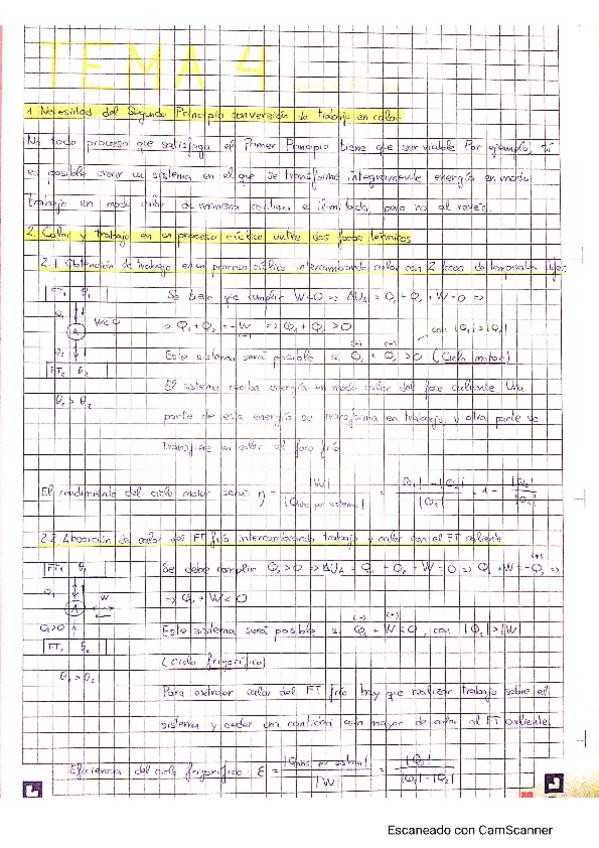 TEMA 4
1. Necesidad del Segundo Principio conversión de trabajo en calor
No todo proceso que satisfaga el Primer Principio tiene que ser viable. Por ejemplo, sí
es posible crear un sistema en el que se transforme íntegramente energía en modo
trabajo en modo calor de manera continua e ilimitada, pero no al revés.
2. Calor y trabajo en un proceso cíclico entre dos focos térmicos
2.1 Obtención de trabajo en un proceso cíclico intercambiando calor con 2 focos de temperatura
Se tiene que cumplir W<0 => ΔU_A = Q₁ + Q₂ + W = 0 =>
=> Q₁ + Q₂ = -W => Q₁ + Q₂ > 0
con |Q₁| > |Q₂|
Este sistema será posible si Q₁ + Q₂ > 0 (Ciclo motor)
(+) (-)
FT₁ θ₁
Q₁
A W<0
Q₂
FT₂ θ₂
θ₁ > θ₂
El sistema recibe energía en modo calor del foco caliente. Una
parte de esta energía se transforma en trabajo, y otra parte se
transfiere en calor al foco frío
El rendimiento del ciclo motor será: η = |W| / |Q| = |Q₁| - |Q₂| / |Q₁| = 1 - |Q₂| / |Q₁|
2.2 Absorción de calor del FT frío intercambiando trabajo y calor con el FT caliente
Se debe cumplir Q₂ > 0 => ΔU_A = Q₁ + Q₂ + W = 0 => Q₁ + W = -Q₂ =>
(+)
=> Q₁ + W < 0
(-) (+)
Este sistema será posible si Q₁ + W < 0, con |Q₁| > |W|
(Ciclo frigorífico)
FT₁ θ₁
Q₁
A W
Q₂>0
FT₂ θ₂
θ₁ > θ₂
Para extraer calor del FT frío hay que realizar trabajo sobre el
sistema y ceder una cantidad aún mayor de calor al FT caliente.
Eficiencia del ciclo frigorífico: ε = |Q| / |W| = |Q₂| / |Q₁| - |Q₂|
Escaneado con CamScanner